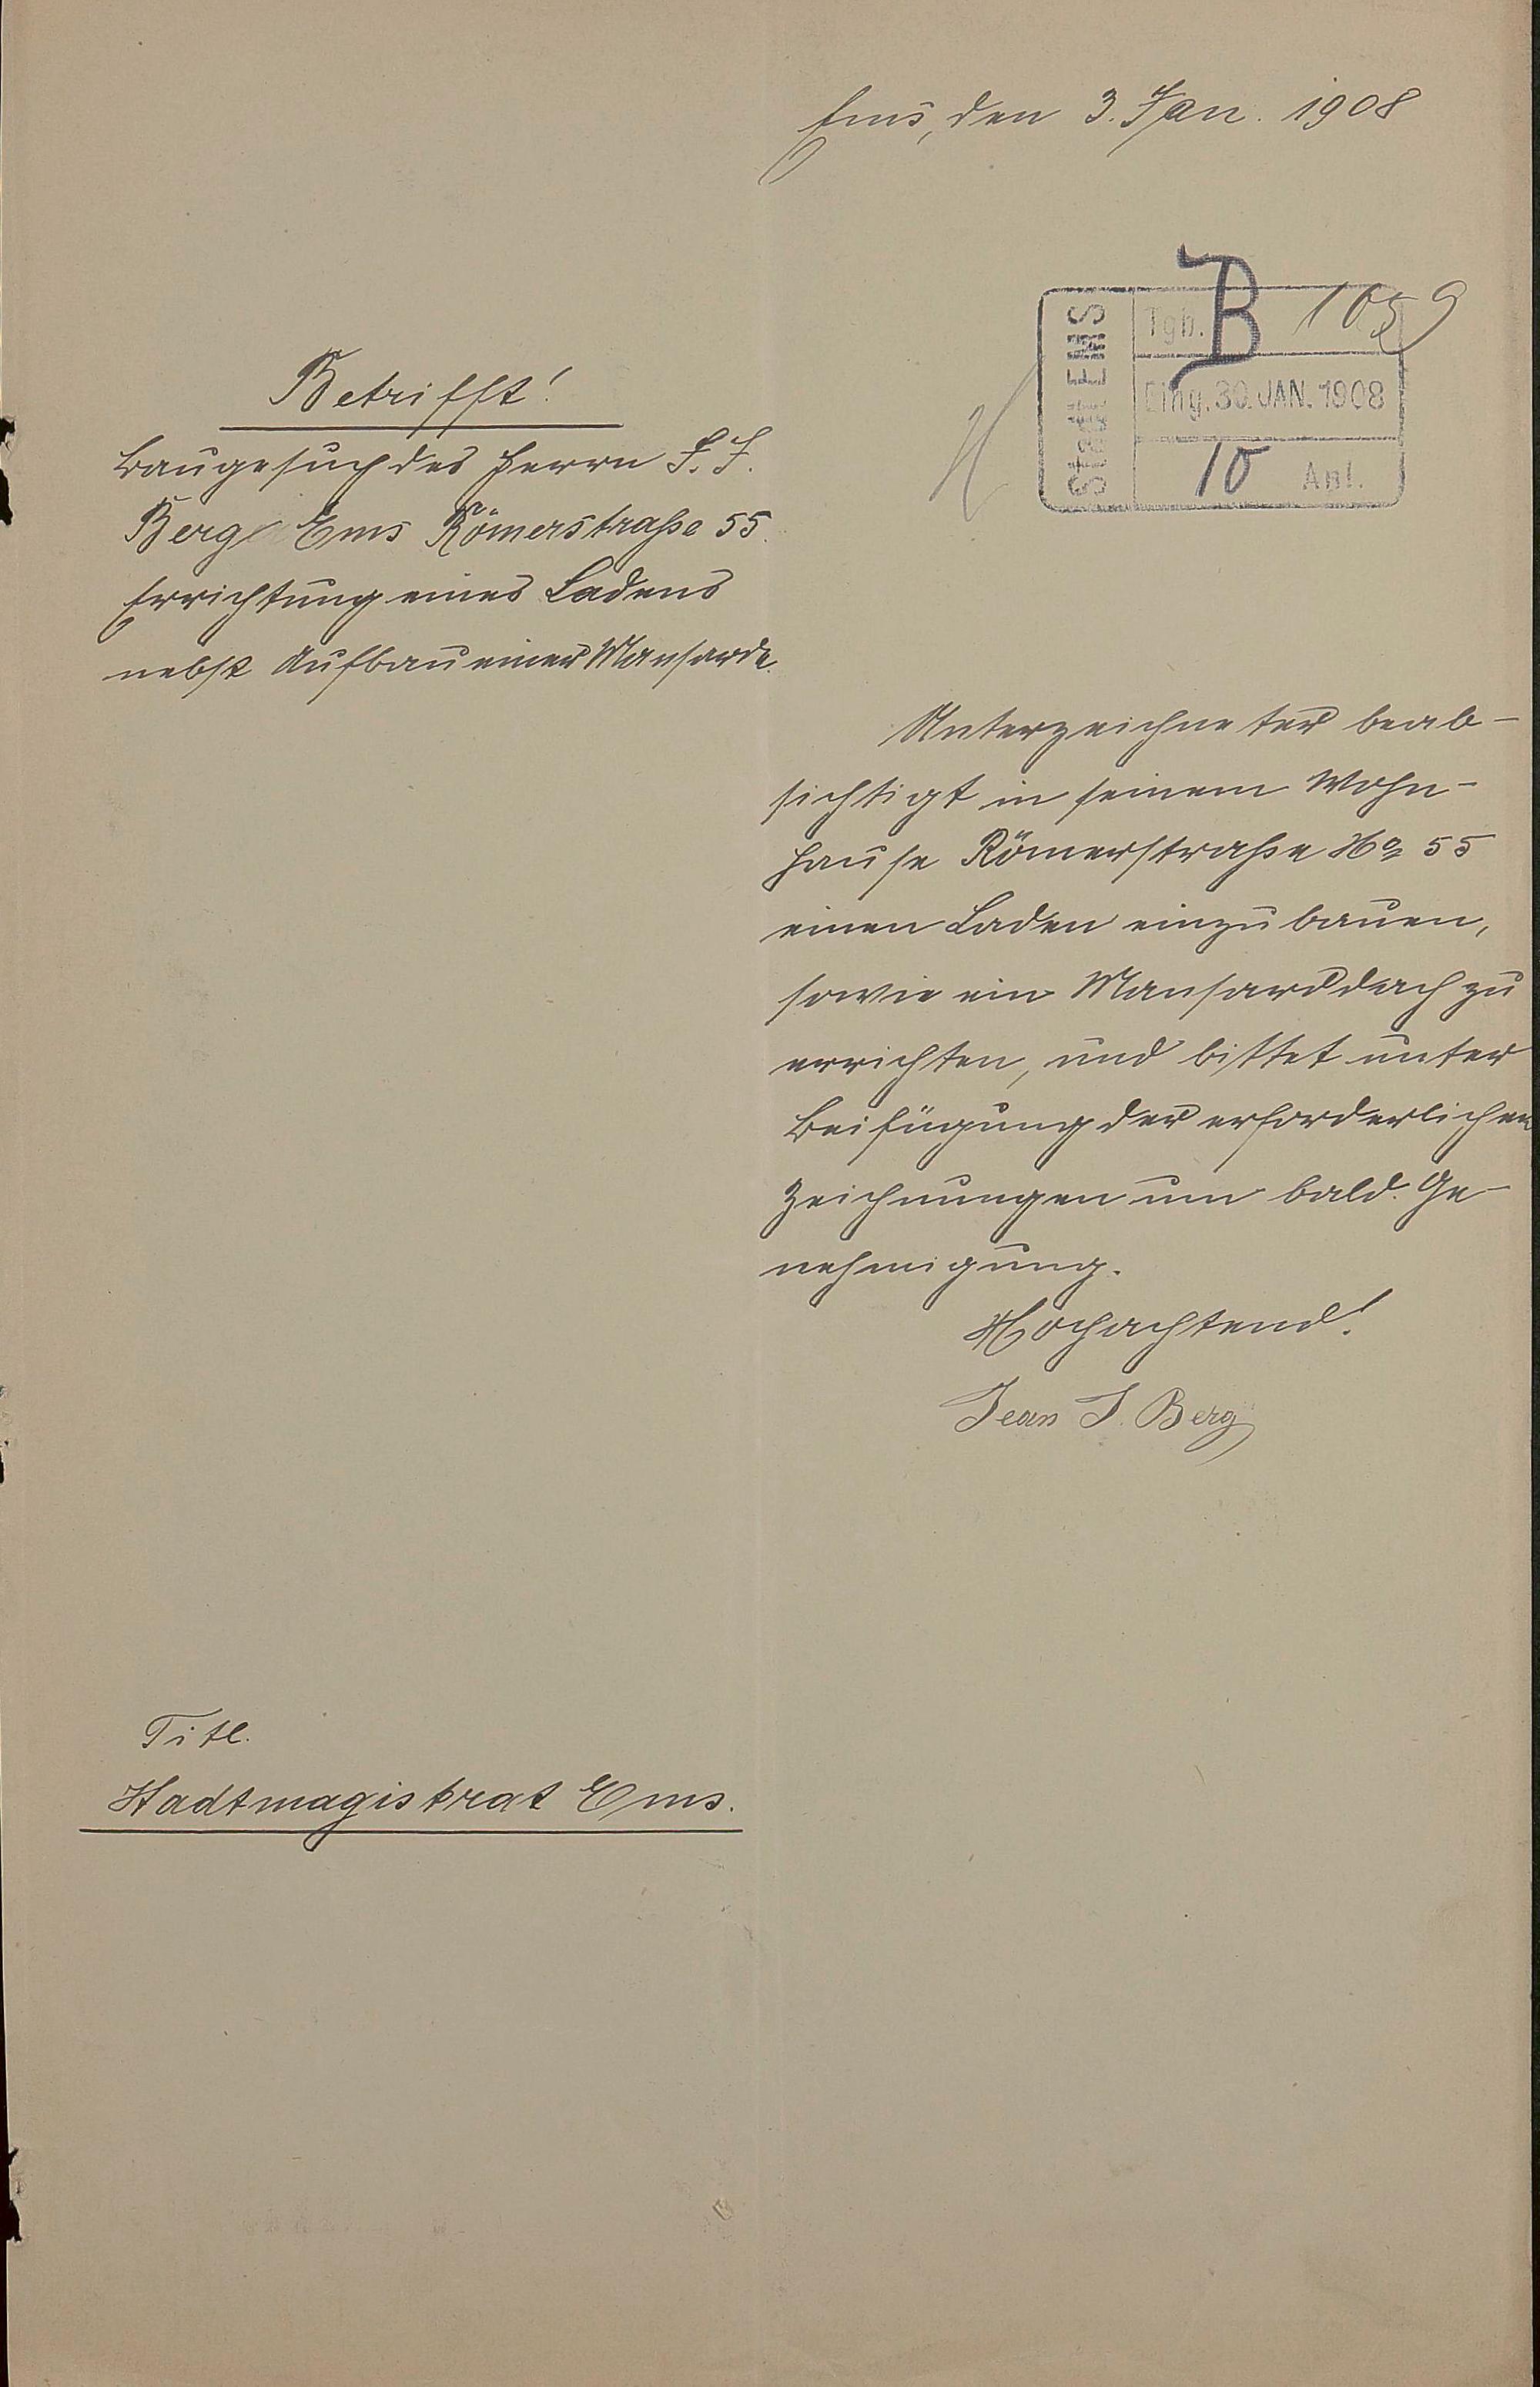 Ems, den 3. Jan. 1908
Stadt EMS
Tgb. B 1059
Eing. 30. JAN. 1908
10 Anl.
Betrifft!
Baugesuch des Herrn J. J.
Berg Ems Römerstraße 55.
Errichtung eines Ladens
nebst Aufbau einer Mansarde.
Unterzeichneter beab-
sichtigt in seinem Wohn-
hause Römerstraße No 55
einen Laden einzubauen,
sowie ein Mansarddach zu
errichten, und bittet unter
Beifügung der erforderlichen
Zeichnungen um bald. Ge-
nehmigung.
Hochachtend!
Jean J. Berg
Titl.
Stadtmagistrat Ems.